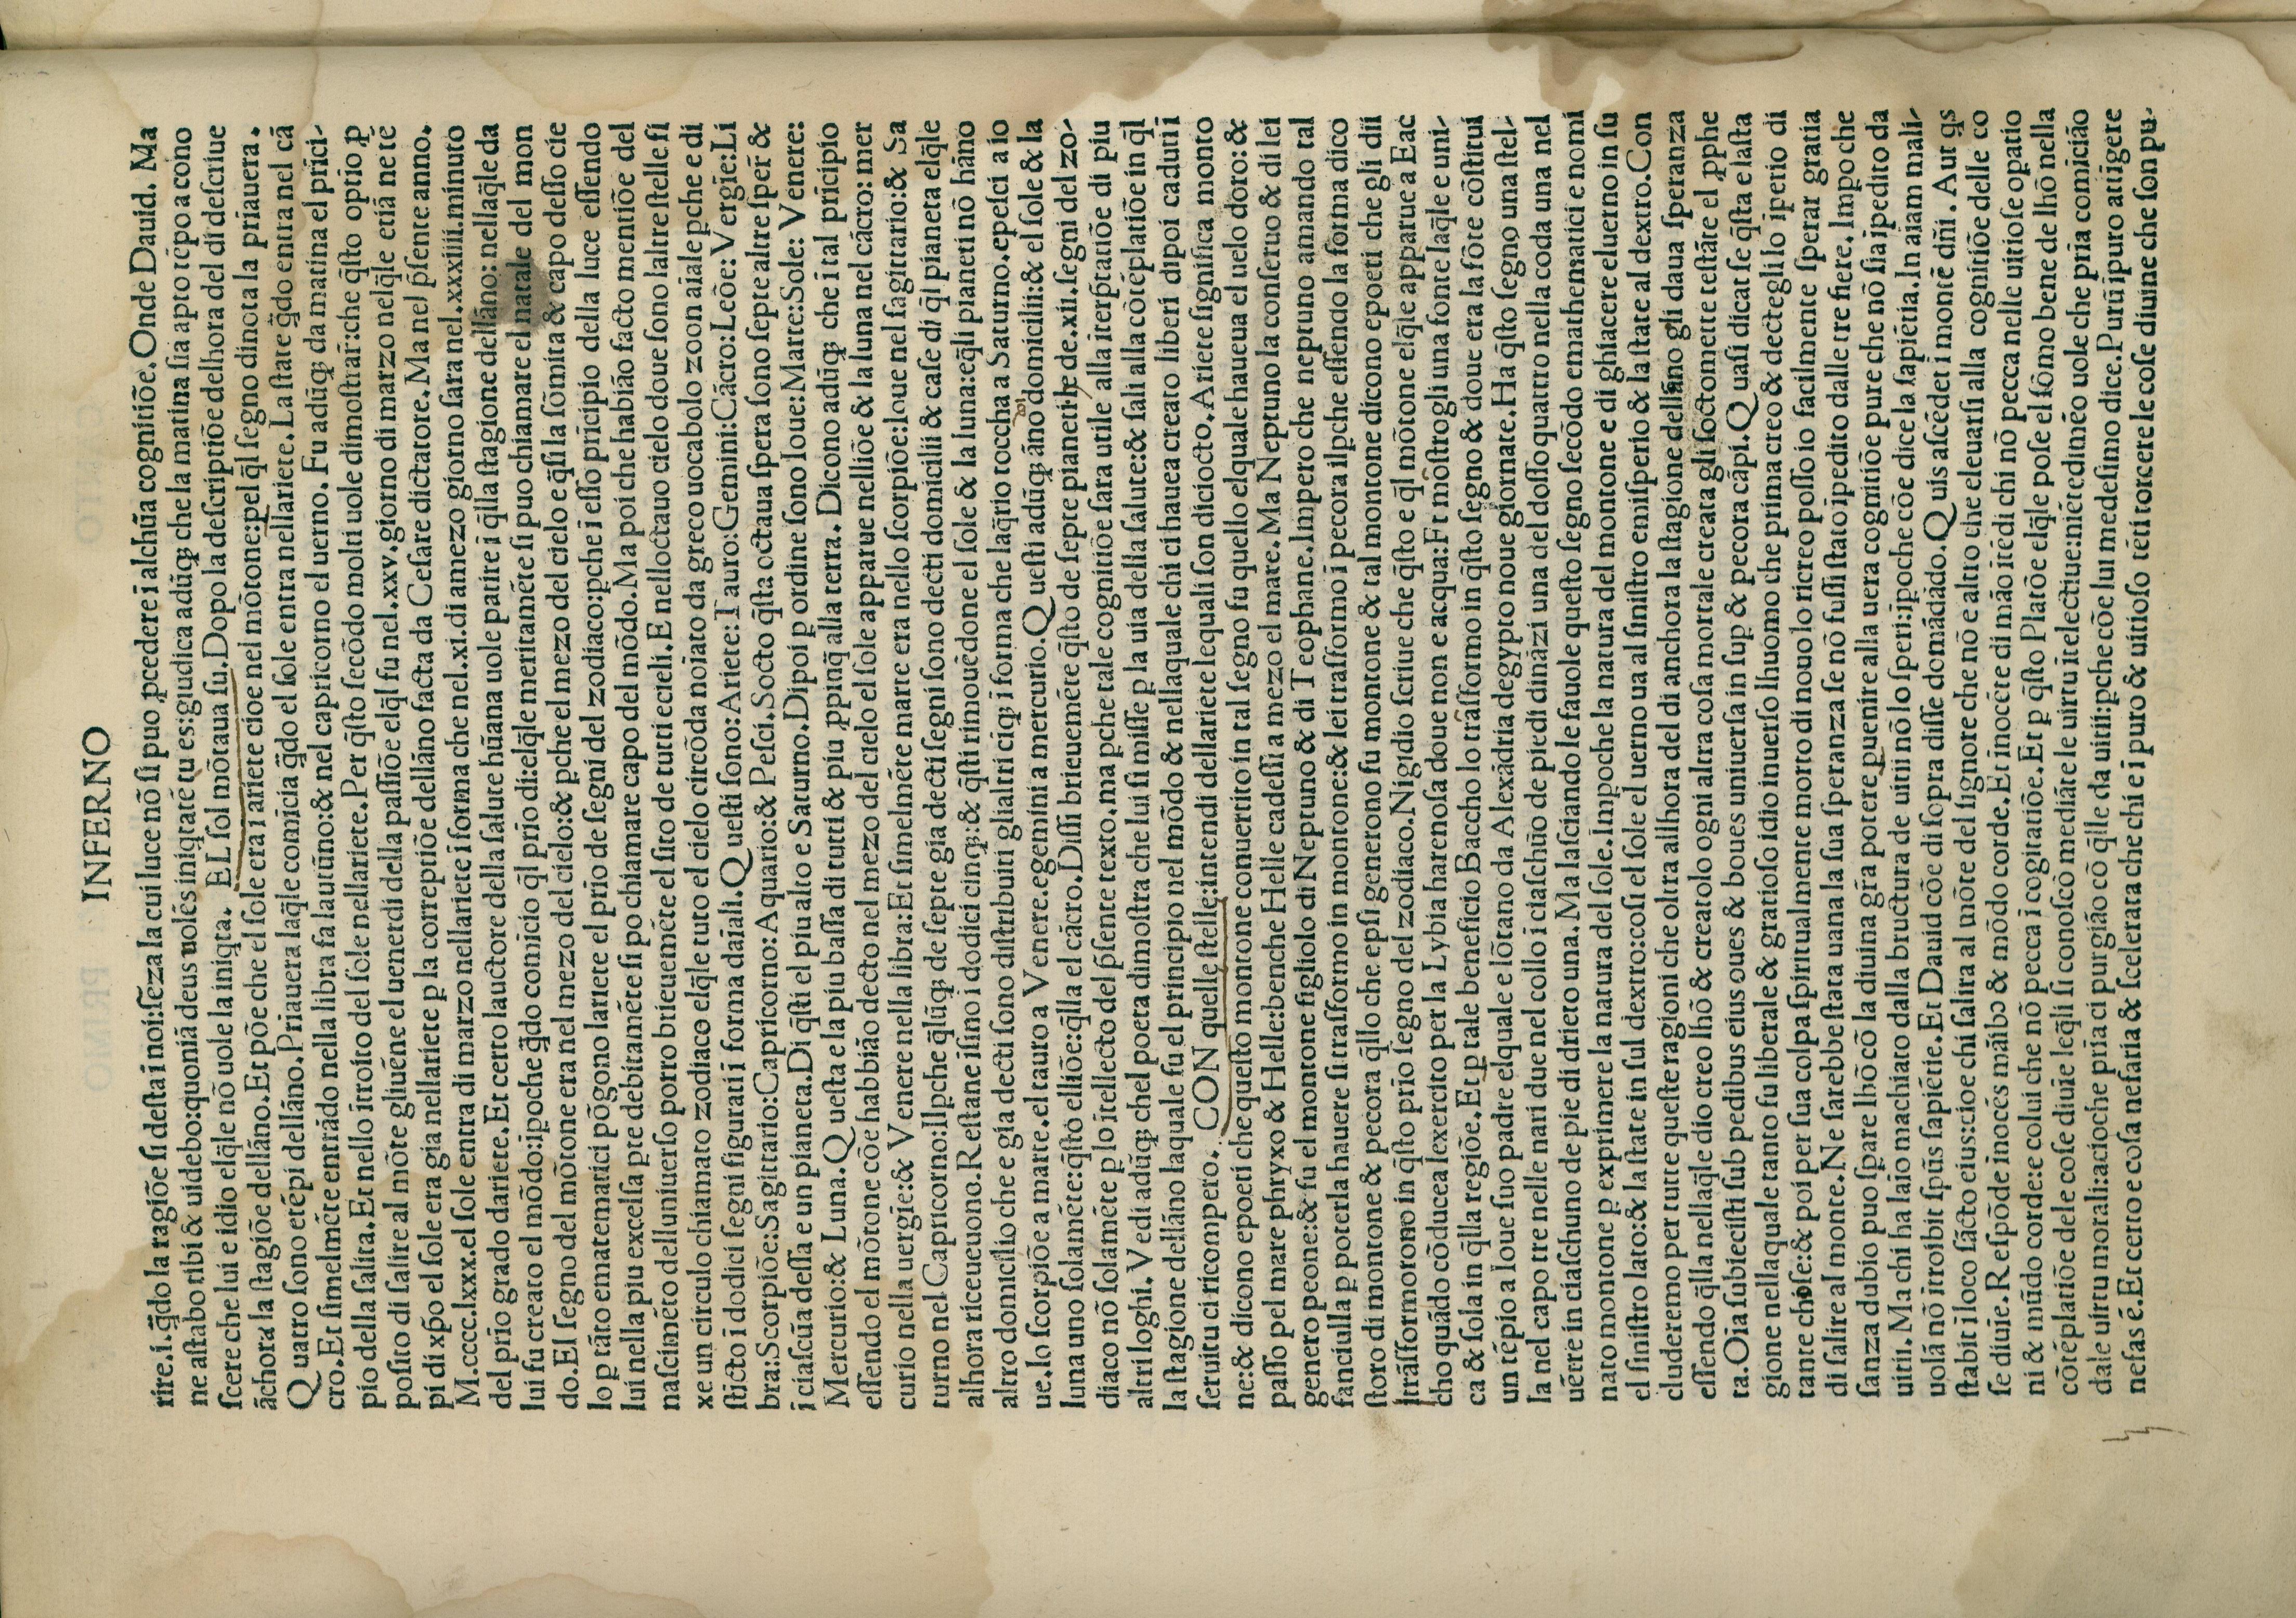 INFERNO
rire.i.q̄do la ragiōe ſi deſta i noi:ſēza la cui luce nō ſi puo ꝓcedere ī alchūa cognitiōe. Onde Dauid. Ma
ne aſtabo tibi & uidebo:quoniā deus uolēs iniq̄tatē tu es:giudica adūqȝ che la matina ſia apto tēpo a cono
ſcere che lui e idio elq̄le nō uole la iniq̄ta. EL ſol mōtaua ſu. Dopo la deſcriptiōe delhora del di deſcriue
āchora la ſtagiōe dellāno. Et pōe che el ſole era i ariete cioe nel mōtone:pel q̄l ſegno dinota la priauera.
Quatro ſono etēpi dellāno. Priauera laq̄le comīcia q̄do el ſole entra nellariete. La ſtate q̄do entra nel cā
cro. Et ſimelmēte entrādo nella libra fa lautūno:& nel capricorno el uerno. Fu adūqȝ da matina el prīci-
pio della ſalita. Et nello ītroito del ſole nellariete. Per q̄ſto ſecōdo molti uole dimoſtrar:che q̄ſto optio p
poſito di ſalire al mōte gliuēne el uenerdi della paſſiōe elq̄l fu nel.xxv.giorno di marzo nelq̄le etiā ne tē
pi di xp̄o el ſole era gia nellariete p la correptiōe dellāno facta da Ceſare dictatore. Ma nel p̄ſente anno.
M.cccc.lxxx.el ſole entra di marzo nellariete ī forma che nel.xi.di amezo giorno ſara nel.xxxiiii.minuto
del prīo grado dariete. Et certo lauctore della ſalute hūana uole patire i q̄lla ſtagione dellāno: nellaq̄le da
lui fu creato el mōdo:ipoche q̄do comīcio q̄l prīo di:elq̄le meritamēte ſi puo chiamare el natale del mon
do. El ſegno del mōtone era nel mezo del cielo:& pche el mezo del cielo e q̄ſi la ſōmita & capo deſſo cie
lo p tāto ematematici pōgono lariete el prīo de ſegni del zodiaco:pche i eſſo prīcipio della luce eſſendo
lui nella piu excelſa pte debitamēte ſi po chiamare capo del mōdo. Ma poi che habiāo facto mentiōe del
naſcimēto delluniuerſo porro brieuemēte el ſito de tutti ecieli. E nelloctauo cielo doue ſono laltre ſtelle fi
xe un circulo chiamato zodiaco elq̄le tuto el cielo circōda noīato da greco uocabolo zoon aīale pche e di
ſticto ī dodici ſegni figurati ī forma daīali. Queſti ſono: Ariete: Tauro: Gemini: Cācro: Leōe: Vergīe: Li
bra: Scorpiōe: Sagittario: Capricorno: Aquario: & Peſci. Socto q̄ſta octaua ſpera ſono ſepte altre ſper̄ &
ī ciaſcūa deſſa e un pianeta. Di q̄ſti el piu alto e Saturno. Dipoi p ordine ſono Ioue: Marte: Sole: Venere:
Mercurio: & Luna. Queſta e la piu baſſa di tutti & piu ꝓpinq̄ alla terra. Dicono adūqȝ che ī tal prīcipio
eſſendo el mōtone cōe habbiāo decto nel mezo del cielo el ſole apparue nelliōe & la luna nel cācro: mer
curio nella uergīe:& Venere nella libra: Et ſimelmēte marte era nello ſcorpiōe: Ioue nel ſagittario:& Sa
turno nel Capricorno: Ilpche q̄lūqȝ de ſepte gia decti ſegni ſono decti domicilii & caſe di q̄l pianeta elq̄le
alhora riceueuono. Reſtane iſino i dodici cinqȝ:& q̄ſti rimouēdone el ſole & la luna:eq̄li pianeti nō hāno
altro domicilio che e gia decti ſono diſtribuiti glialtri cīqȝ ī forma che laq̄rio toccha a Saturno.epeſci a io
ue.lo ſcorpiōe a marte.el tauro a Venere.egemini a mercurio. Queſti adūqȝ āno domicilii:& el ſole & la
luna uno ſolamēte:q̄ſto elliōe:q̄lla el cācro. Diſſi brieuemēte q̄ſto de ſepte pianeti & de.xii.ſegni del zo-
diaco nō ſolamēte p lo ītellecto del p̄ſente texto,ma pche tale cognitiōe ſara utile alla īterp̄tatiōe di piu
altri loghi. Vedi adūqȝ chel poeta dimoſtra che lui ſi miſſe p la uia della ſalute:& ſali alla cōtēplatiōe in q̄l
la ſtagione dellāno laquale fu el principio nel mōdo & nellaquale chi ci hauea creato liberi dipoi caduti ī
ſeruitu ci ricompero. CON quelle ſtelle:intendi dellariete lequali ſon diciocto. Ariete ſignifica monto
ne:& dicono epoeti che queſto montone conuertito in tal ſegno fu quello elquale haueua el uelo doro:&
paſſo pel mare phryxo & Helle:benche Helle cadeſſi a mezo el mare. Ma Neptuno la conſeruo & di lei
genero pecone:& fu el montone figliolo di Neptuno & di Teophane. Impero che neptuno amando tal
fanciulla p poterla hauere ſi traſformo in montone:& lei traſformo ī pecora ilpche eſſendo la forma dico
ſtoro di montone & pecora q̄llo che epſi generono fu montone & tal montone dicono epoeti che gli dii
ītrāſformorono in q̄ſto prīo ſegno del zodiaco. Nigidio ſcriue che q̄ſto e q̄l mōtone elq̄le apparue a Bac
cho quādo cōducea lexercito per la Lybia harenoſa doue non e acqua: Et mōſtrogli una fonte laq̄le e uni-
ca & ſola in q̄lla regiōe. Et p tale beneficio Baccho lo trāſformo in q̄ſto ſegno & doue era la fōte cōſtitui
un tēpio a Ioue ſuo padre elquale e lōtano da Alexādria degypto noue giornate. Ha q̄ſto ſegno una ſtel-
la nel capo tre nelle nari due nel collo i ciaſchūo de piedi dināzi una del doſſo quattro nella coda una nel
uētre in ciaſchuno de pie di drieto una. Ma laſciando le fauole queſto ſegno ſecōdo emathematici e nomi
nato montone p exprimere la natura del ſole. Impoche la natura del montone e di ghiacere eluerno in ſu
el ſiniſtro lato:& la ſtate in ſul dextro:coſi el ſole el uerno ua al ſiniſtro emiſperio & la ſtate al dextro. Con
cluderemo per tutte queſte ragioni che oltra allhora del di anchora la ſtagione dellāno gli daua ſperanza
eſſendo q̄lla nellaq̄le dio creo lhō & creatolo ogni altra coſa mortale creata gli ſoctomette teſtāte el ꝓphe
ta. Oīa ſubieciſti ſub pedibus eius oues & boues uniuerſa in ſup & pecora cāpi. Quaſi dicat ſe q̄ſta e laſta
gione nellaquale tanto fu liberale & gratioſo idio inuerſo lhuomo che prima creo & dectegli lo īperio di
tante choſe:& poi per ſua colpa ſpiritualmente morto di nouo lo ricreo poſſo io facilmente ſperar gratia
di ſalire al monte. Ne ſarebbe ſtata uana la ſua ſperanza ſe nō fuſſi ſtato īpedito dalle tre fiere. Impo che
ſanza dubio puo ſpare lhō cō la diuina gr̄a potere puenire alla uera cognitiōe pure che nō ſia īpedito da
uitii. Ma chi ha laīo machiato dalla bructura de uitii nō lo ſperi:ipoche cōe dice la ſapiētia. In aīam mali-
uolā nō ītroibit ſpūs ſapiētie. Et Dauid cōe di ſopra diſſe domādādo. Quis aſcēdet i montē dñi. Aut qs
ſtabit ī loco ſācto eius:cioe chi ſalira al mōte del ſignore che nō e altro che eleuarſi alla cognitiōe delle co
ſe diuīe. Reſpōde īnocēs māibꝰ & mōdo corde. Et īnocēte di māo ītēdi chi nō pecca nelle uitioſe opatio
ni & mūdo corde:e colui che nō pecca ī cogitatiōe. Et p q̄ſto Platōe elq̄le poſe el ſōmo bene de lhō nella
cōtēplatiōe dele coſe diuīe leq̄li ſi conoſcō mediāte le uirtu ītelectiue:niētedimēo uole che prīa comīciāo
dale uirtu morali:acioche prīa ci purgiāo cō q̄lle da uitii:pche cōe lui medeſimo dice. Purū īpuro attīgere
nefas ē. Et certo e coſa nefaria & ſcelerata che chi e īpuro & uitioſo tēti torcere le coſe diuine che ſon pu-